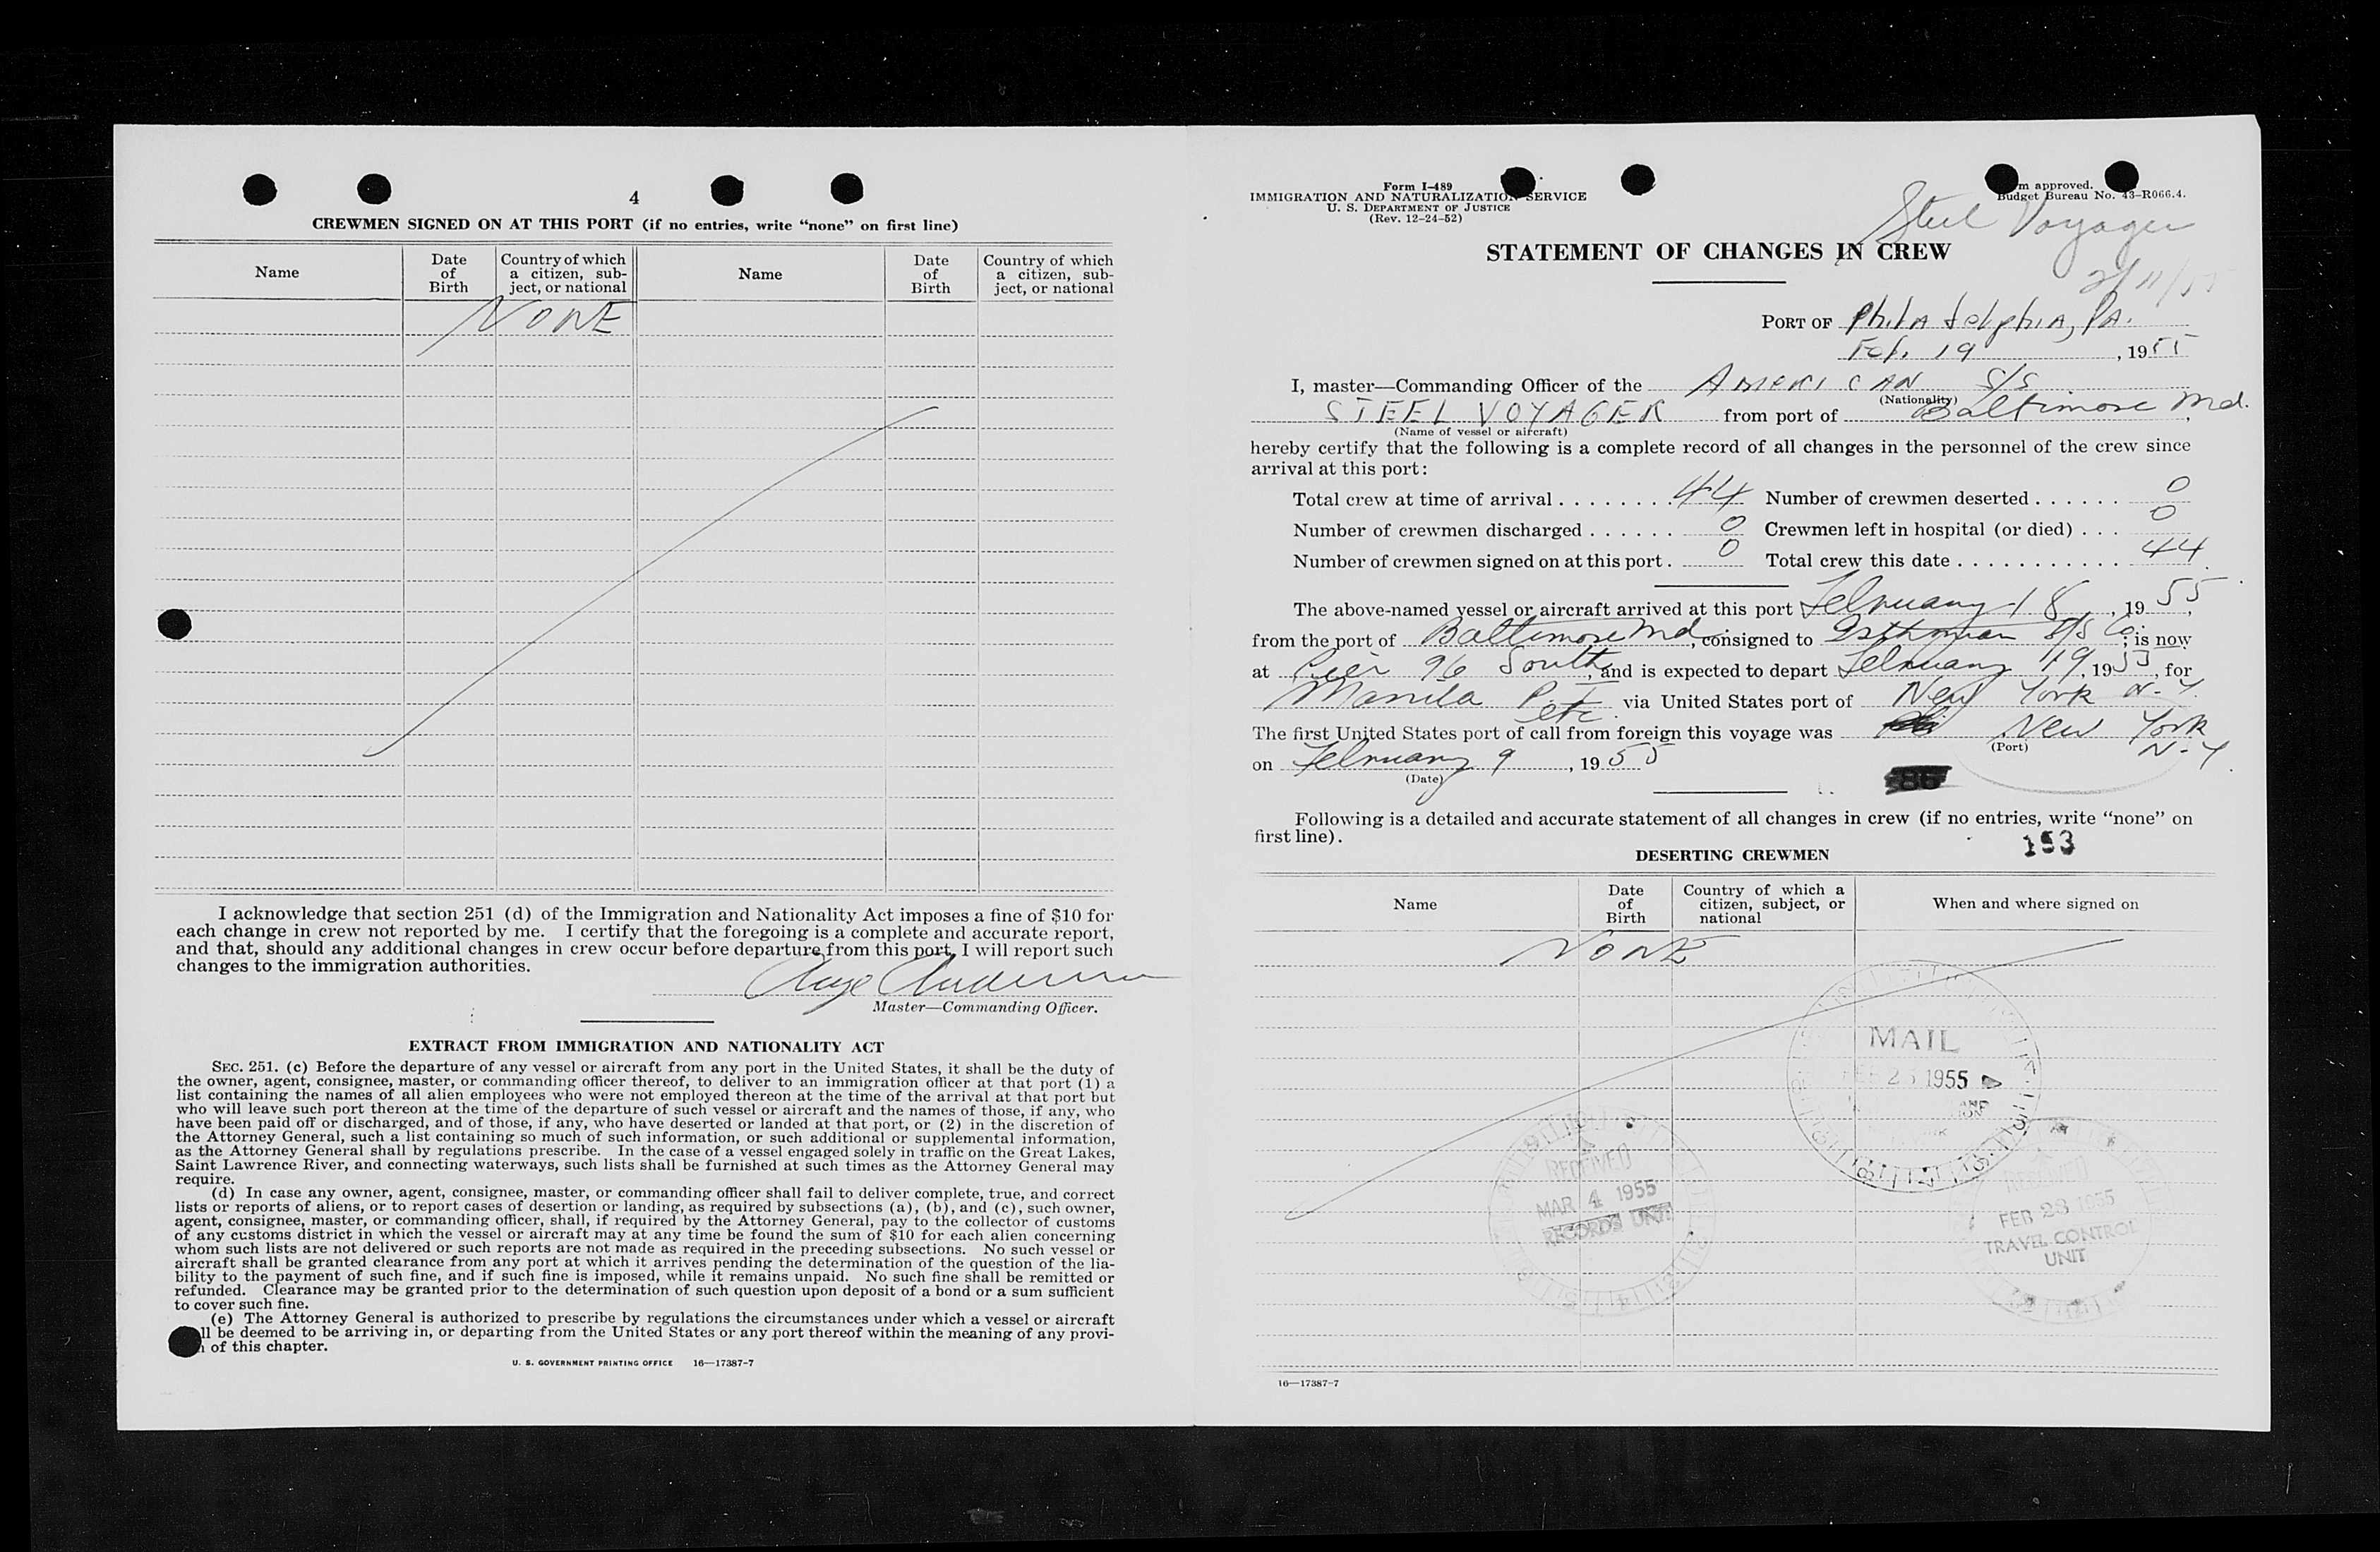 4
CREWMEN SIGNED ON AT THIS PORT (if no entries, write “none” on first line)
Name
Date of Birth
Country of which a citizen, subject, or national
Name
Date of Birth
Country of which a citizen, subject, or national
NONE
I acknowledge that section 251 (d) of the Immigration and Nationality Act imposes a fine of $10 for
each change in crew not reported by me. I certify that the foregoing is a complete and accurate report,
and that, should any additional changes in crew occur before departure from this port, I will report such
changes to the immigration authorities.
Master—Commanding Officer.
EXTRACT FROM IMMIGRATION AND NATIONALITY ACT
SEC. 251. (c) Before the departure of any vessel or aircraft from any port in the United States, it shall be the duty of
the owner, agent, consignee, master, or commanding officer thereof, to deliver to an immigration officer at that port (1) a
list containing the names of all alien employees who were not employed thereon at the time of the arrival at that port but
who will leave such port thereon at the time of the departure of such vessel or aircraft and the names of those, if any, who
have been paid off or discharged, and of those, if any, who have deserted or landed at that port, or (2) in the discretion of
the Attorney General, such a list containing so much of such information, or such additional or supplemental information,
as the Attorney General shall by regulations prescribe. In the case of a vessel engaged solely in traffic on the Great Lakes,
Saint Lawrence River, and connecting waterways, such lists shall be furnished at such times as the Attorney General may
require.
(d) In case any owner, agent, consignee, master, or commanding officer shall fail to deliver complete, true, and correct
lists or reports of aliens, or to report cases of desertion or landing, as required by subsections (a), (b), and (c), such owner,
agent, consignee, master, or commanding officer, shall, if required by the Attorney General, pay to the collector of customs
of any customs district in which the vessel or aircraft may at any time be found the sum of $10 for each alien concerning
whom such lists are not delivered or such reports are not made as required in the preceding subsections. No such vessel or
aircraft shall be granted clearance from any port at which it arrives pending the determination of the question of the lia-
bility to the payment of such fine, and if such fine is imposed, while it remains unpaid. No such fine shall be remitted or
refunded. Clearance may be granted prior to the determination of such question upon deposit of a bond or a sum sufficient
to cover such fine.
(e) The Attorney General is authorized to prescribe by regulations the circumstances under which a vessel or aircraft
ll be deemed to be arriving in, or departing from the United States or any port thereof within the meaning of any provi-
of this chapter.
U. S. GOVERNMENT PRINTING OFFICE 16—17387-7
Form I-489
IMMIGRATION AND NATURALIZATION SERVICE
U. S. DEPARTMENT OF JUSTICE
(Rev. 12-24-52)
m approved.
Budget Bureau No. 43-R066.4.
Steel Voyager
2/11/55
STATEMENT OF CHANGES IN CREW
PORT OF Philadelphia, PA.
Feb. 19, 1955
I, master—Commanding Officer of the AMERICAN S/S
(Nationality)
STEEL VOYAGER from port of Baltimore Md.
(Name of vessel or aircraft)
hereby certify that the following is a complete record of all changes in the personnel of the crew since
arrival at this port:
Total crew at time of arrival . . . . . . . . 44 Number of crewmen deserted . . . . . . 0
Number of crewmen discharged . . . . . . 0 Crewmen left in hospital (or died) . . . 0
Number of crewmen signed on at this port . 0 Total crew this date . . . . . . . . . . . 44
The above-named vessel or aircraft arrived at this port February 18, 1955,
from the port of Baltimore Md, consigned to Isthmian S/S Co; is now
at Pier 96 South, and is expected to depart February 19, 1955, for
Manila P.I etc. via United States port of New York N-Y.
The first United States port of call from foreign this voyage was New York N-Y
(Port)
on February 9, 1955
(Date)
86
Following is a detailed and accurate statement of all changes in crew (if no entries, write “none” on
first line).
193
DESERTING CREWMEN
Name
Date of Birth
Country of which a citizen, subject, or national
When and where signed on
NONE
MAIL
1955
RECEIVED
MAR 4 1955
RECORDS UNIT
RECEIVED
FEB 28 1955
TRAVEL CONTROL
UNIT
16—17387-7